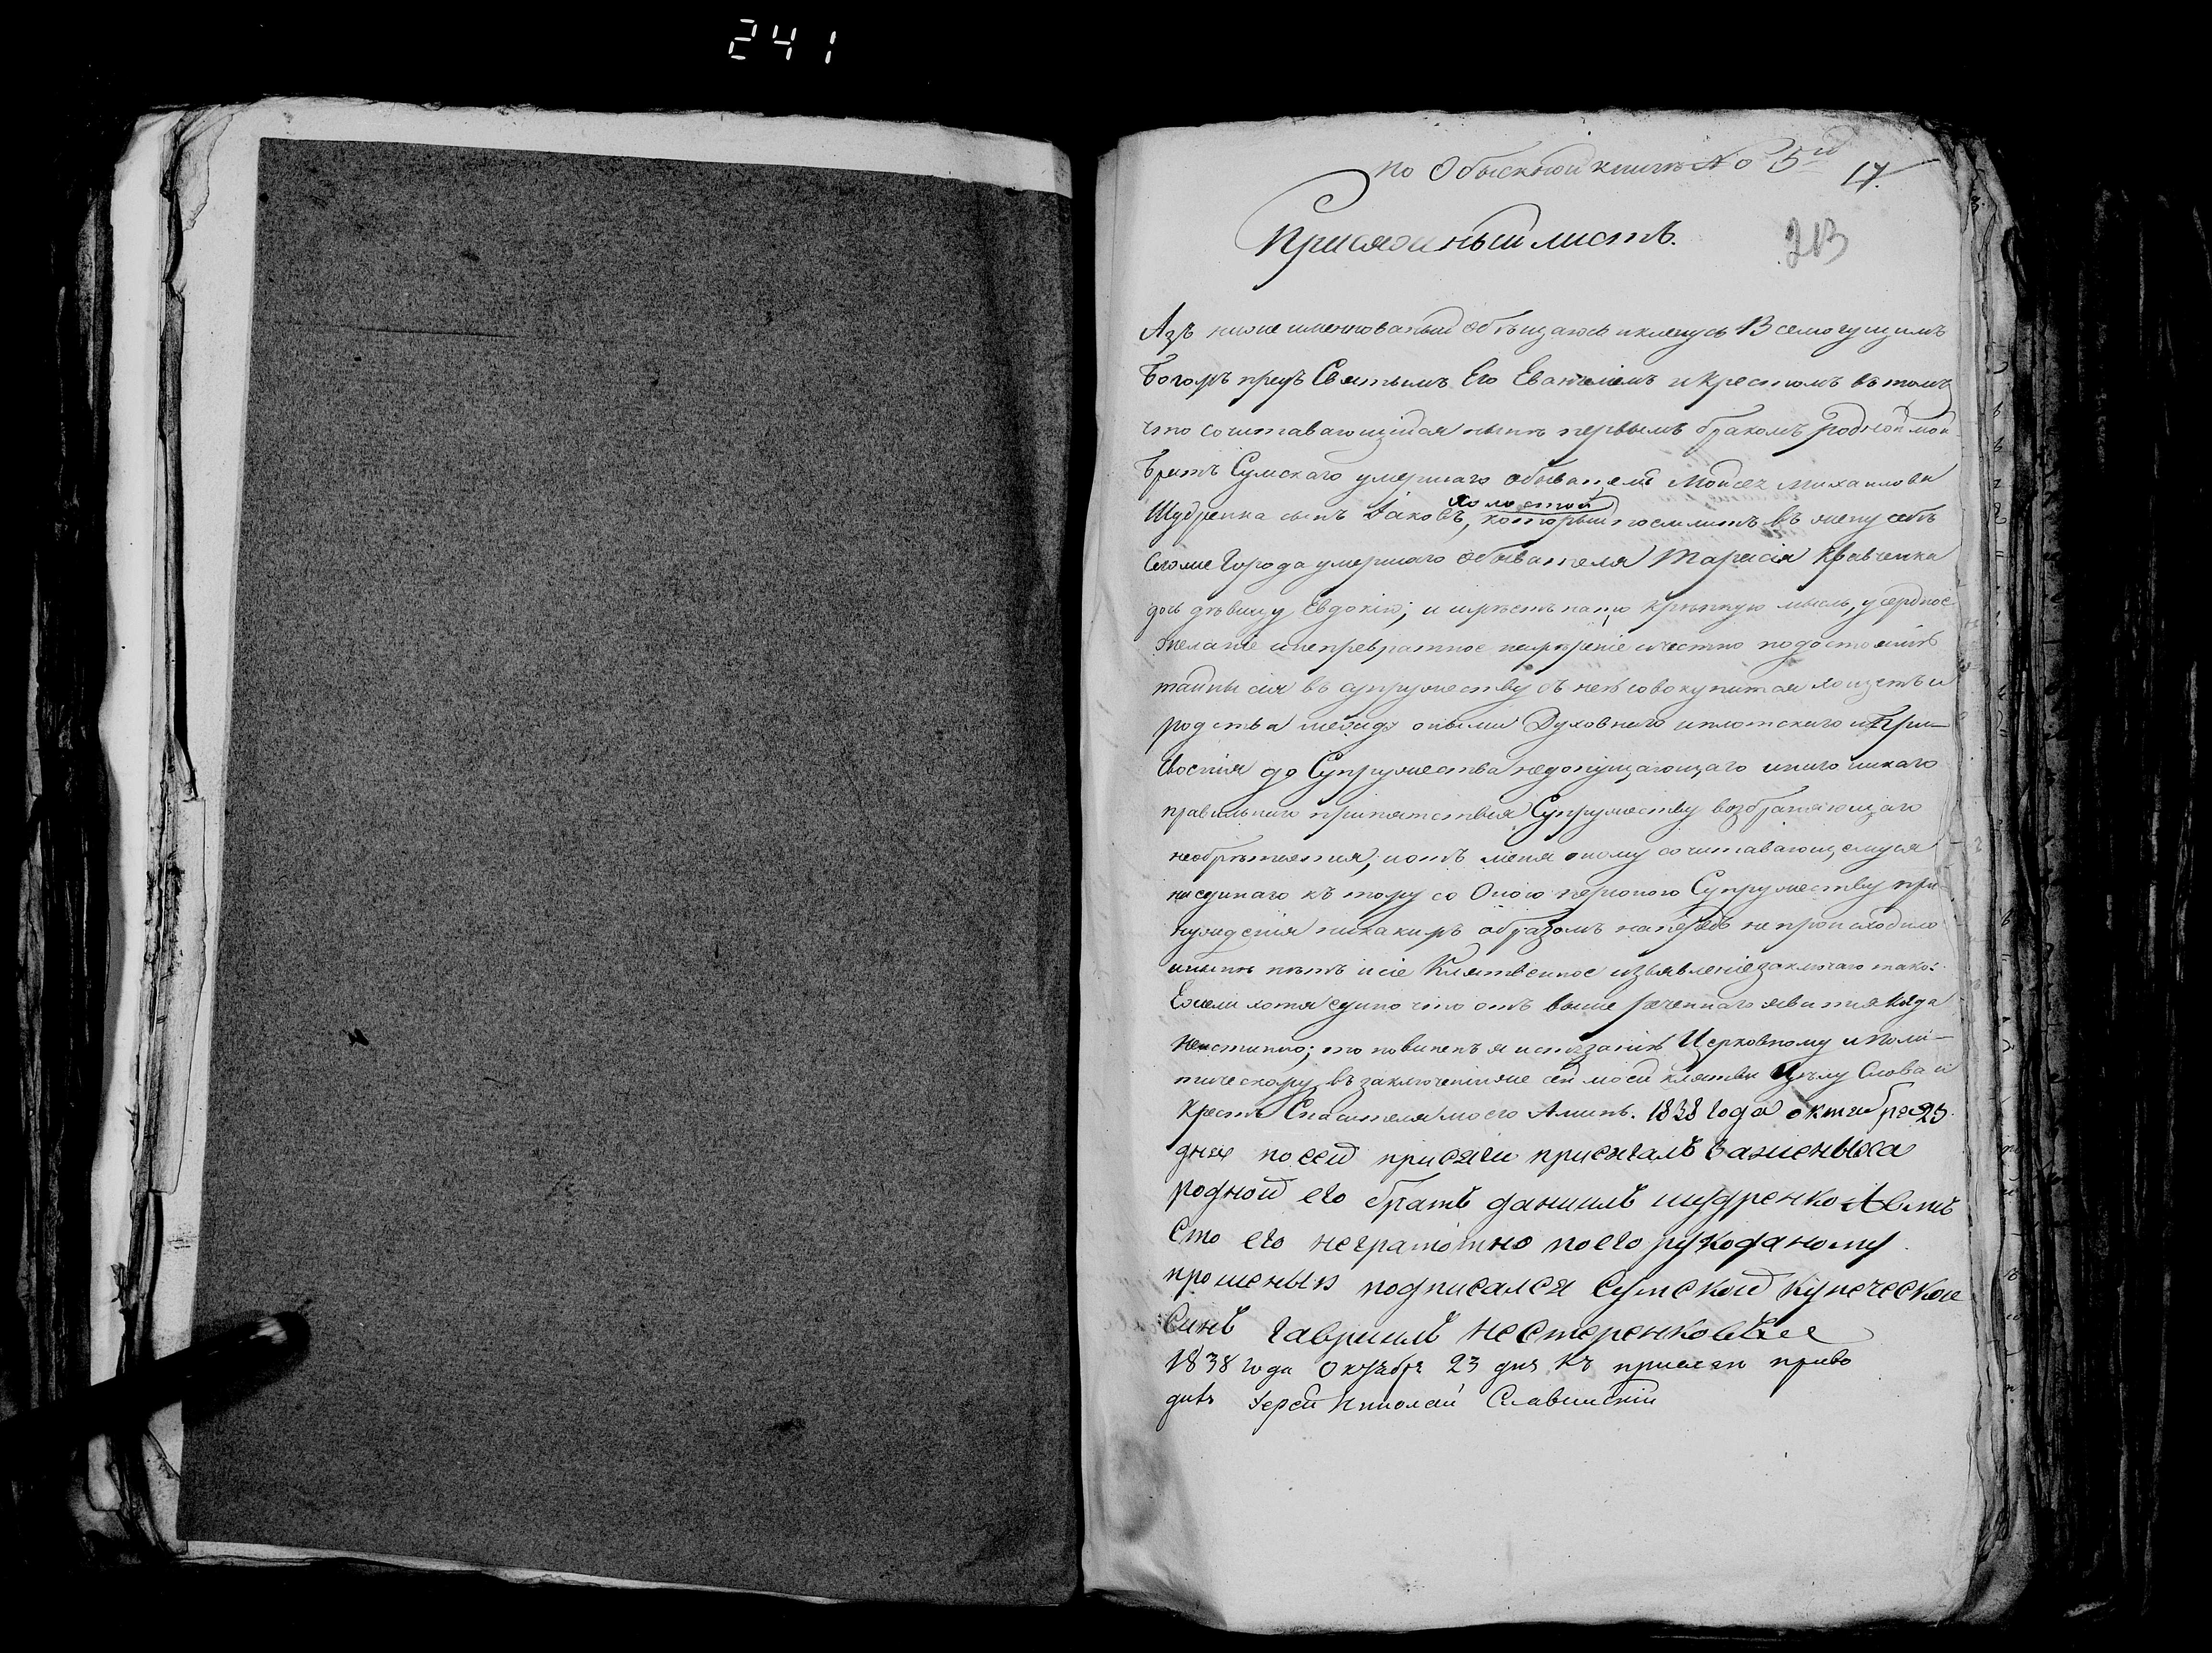 241
по Обыскной книгѣ № 5й
17.
Присяжный листъ.
213
Азъ ниже именнованый обѣщаюсь и клянусь Всемогущимъ
Богомъ предъ Святымъ Его Евангеліемъ и крестомъ въ томъ,
что сочитавающійся нынѣ первымъ бракомъ родной мой
братъ Сумскаго умершаго обывателя Моисея Михаилова
холостой
Шудренка сынъ Іаковъ, который поемлитъ въ жену себѣ
сегоже города умершаго обывателя Тарасія Кравченка
дочь дѣвицу Евдокію; и имѣетъ на то крѣпкую мысль, усердное
желаніе и непревратное намѣреніе и честно по достоянію
тайны сія въ супружеству съ нею совокупится хощетъ и
родства между оными Духовнаго и плотскаго и при-
своенія до Супружества недопущающаго и иного никаго
правильнаго припятствія Супружеству возбраняющаго
необрѣтается, и отъ меня оному сочитавающемуся
ниединаго къ тому со Оною персоною Супружеству при
нужденія никакимъ образомъ напредъ не происходило
и нынѣ нѣтъ и сіе Клятвенное изъявленіе заключаю тако:
Ежели хотя едино что отъ выше реченнаго явится когда
неистинно; то повиненъ я истязанію Церковному и поли-
тическому, въ заключеніи же сей моей клятвы Цѣлую Слова и
Крестъ Спасителя моего Аминь. 1838 года октября 23.
дня по сей присяги присягалъ заженыха
родной его братъ данилъ шудренко Авмѣ
сто его неграмотно по его рукоданому
прошенью подписался Сумской купеческой
синъ гавриилъ нестеренковъ
1838 года Октября 23 дня къ присяги приво
дилъ Іерей Николай Славинскій